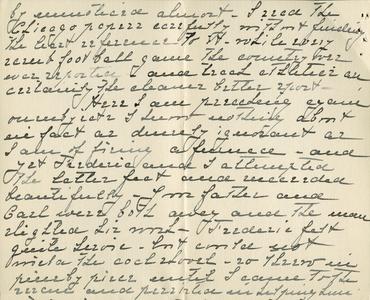 so unnoticed almost - I read the
Chicago papers carefully without finding
the least reference to it - while every
recent football game the country over
was reported I and track athletics are
certainly the cleaner better sport -
Here I am preceeding
on subjects I know nothing about
in fact as densely ignorant as
I am of firing a furnace - and
yet Frederic and I attempted
the latter feat and succeeded
beautifully - Your father and
Carl were both away and the man
slighted his work - Frederic felt
quite heroic - but could not
the coal shovel - so threw in
piece by piece until I came to the
rescue and persisted in helping him